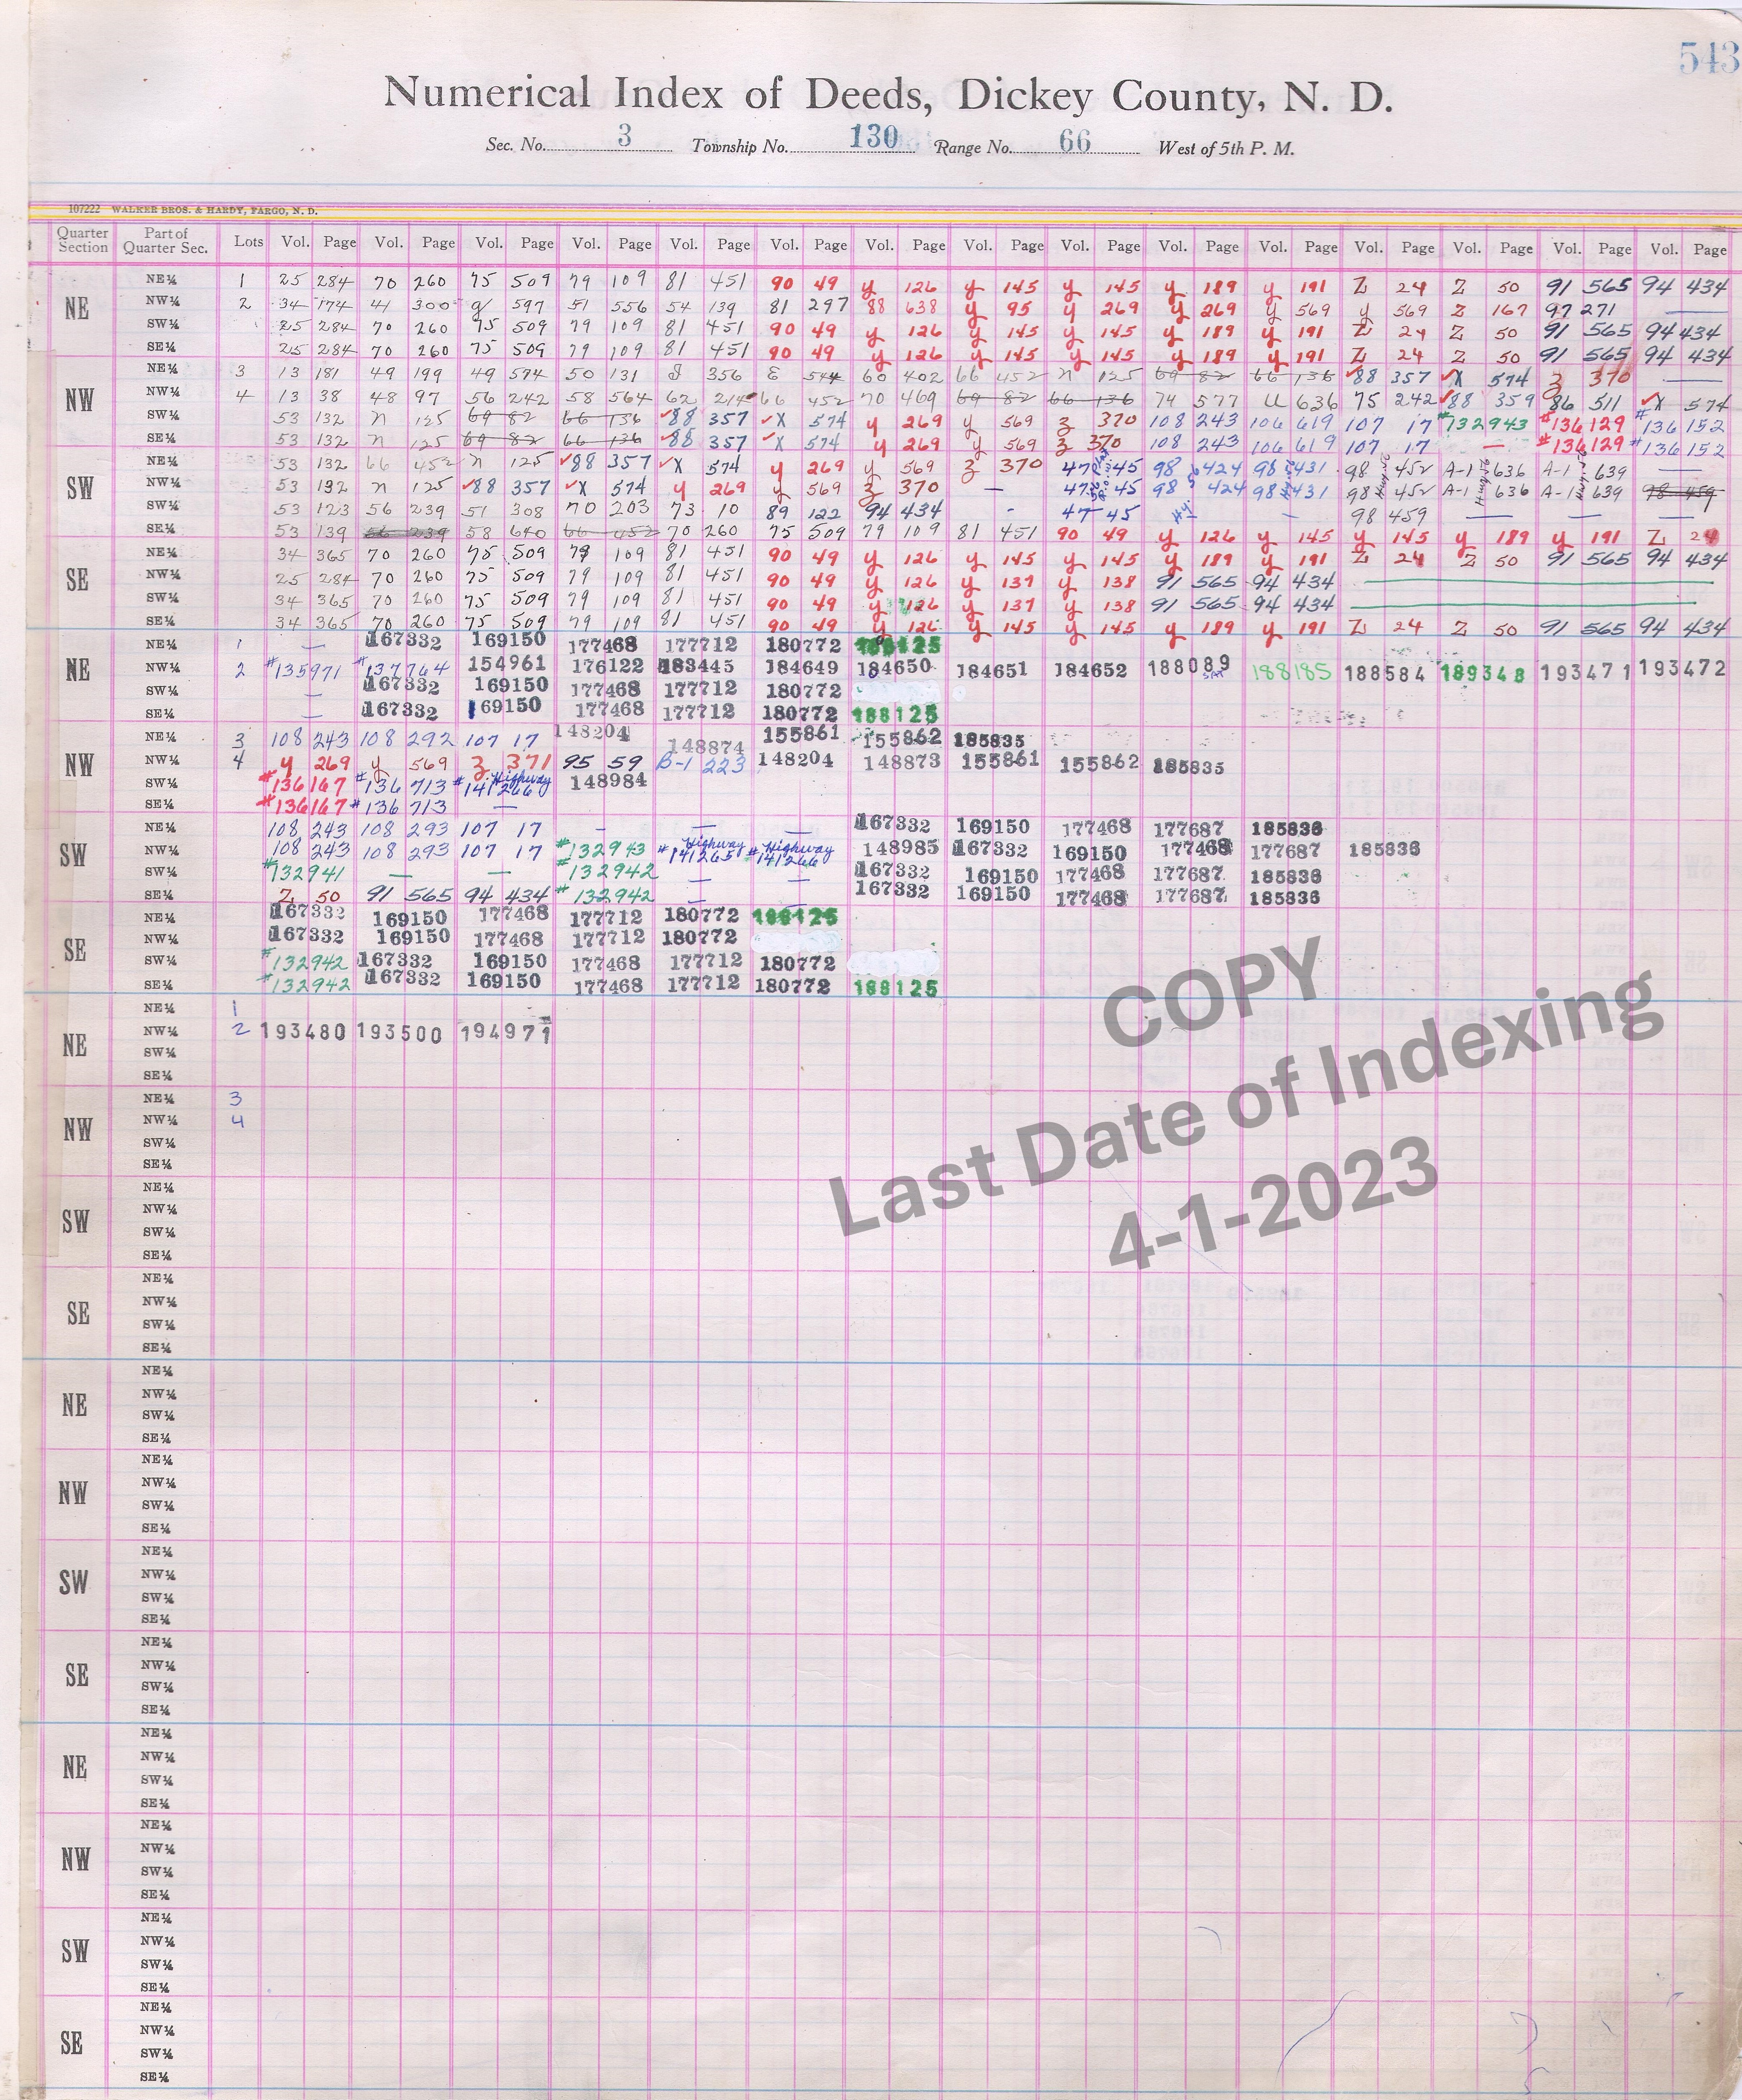 543
Numerical Index of Deeds, Dickey County, N. D.
Sec. No. 3 Township No. 130 Range No. 66 West of 5th P. M.
107222 WALKER BROS. & HARDY, FARGO, N. D.
Quarter Section Part of Quarter Sec. Lots Vol. Page Vol. Page Vol. Page Vol. Page Vol. Page Vol. Page Vol. Page Vol. Page Vol. Page Vol. Page Vol. Page Vol. Page Vol. Page Vol. Page Vol. Page
NE
NE¼ 1 25 284 70 260 75 509 79 109 81 451 90 49 y 126 y 145 y 145 y 189 y 191 Z 24 Z 50 91 565 94 434
NW¼ 2 34 174 41 300 597 51 556 54 139 81 297 88 638 y 95 y 269 y 269 y 569 y 569 Z 167 97 271 —
SW¼ 25 284 70 260 75 509 79 109 81 451 90 49 y 126 y 145 y 145 y 189 y 191 Z 24 Z 50 91 565 94 434
SE¼ 25 284 70 260 75 509 79 109 81 451 90 49 y 126 y 145 y 145 y 189 y 191 Z 24 Z 50 91 565 94 434
NW
NE¼ 3 13 181 49 199 49 574 50 131 356 E 544 60 402 66 452 n 125 69 82 66 136 ✓88 357 ✓X 574 z 370 —
NW¼ 4 13 38 48 97 56 242 58 564 62 214 66 452 70 469 69 82 66 136 74 577 U 636 75 242 ✓88 359 86 511 ✓X 574
SW¼ 53 132 n 125 69 82 66 136 ✓88 357 ✓X 574 y 269 y 569 z 370 108 243 106 619 107 17 #132943 #136129 #136152
SE¼ 53 132 n 125 69 82 66 136 ✓88 357 ✓X 574 y 269 y 569 z 370 108 243 106 619 107 17 — #136129 #136152
SW
NE¼ 53 132 66 452 n 125 ✓88 357 ✓X 574 y 269 y 569 z 370 47 45 98 424 98 431 98 452 A-1 636 A-1 639 —
NW¼ 53 132 n 125 ✓88 357 ✓X 574 y 269 y 569 z 370 — 47 45 98 424 98 431 98 452 A-1 636 A-1 639 98 459
SW¼ 53 123 56 239 51 308 70 203 73 10 89 122 94 434 - 47 45 Hy — 98 459 — — —
SE¼ 53 139 56 239 58 640 66 452 70 260 75 509 79 109 81 451 90 49 y 126 y 145 y 145 y 189 y 191 Z 24
SE
NE¼ 34 365 70 260 75 509 79 109 81 451 90 49 y 126 y 145 y 145 y 189 y 191 Z 24 Z 50 91 565 94 434
NW¼ 25 284 70 260 75 509 79 109 81 451 90 49 y 126 y 137 y 138 91 565 94 434
SW¼ 34 365 70 260 75 509 79 109 81 451 90 49 y 126 y 137 y 138 91 565 94 434
SE¼ 34 365 70 260 75 509 79 109 81 451 90 49 y 126 y 145 y 145 y 189 y 191 Z 24 Z 50 91 565 94 434
NE
NE¼ 1 — 167332 169150 177468 177712 180772 188125
NW¼ 2 #135971 #137764 154961 176122 183445 184649 184650 184651 184652 188089 188185 188584 189348 193471 193472
SW¼ — 167332 169150 177468 177712 180772
SE¼ — 167332 169150 177468 177712 180772 188125
NW
NE¼ 3 108 243 108 292 107 17 148204 148874 155861 155862 185835
NW¼ 4 y 269 y 569 z 371 95 59 B-1 223 148204 148873 155861 155862 185835
SW¼ #136167 #136713 #141266 Highway 148984
SE¼ #136167 #136713 —
SW
NE¼ 108 243 108 293 107 17 - — — 167332 169150 177468 177687 185836
NW¼ 108 243 108 293 107 17 #132943 #141265 Highway #141266 Highway 148985 167332 169150 177468 177687 185836
SW¼ #132941 — — #132942 — — 167332 169150 177468 177687 185836
SE¼ Z 50 91 565 94 434 #132942 — — 167332 169150 177468 177687 185836
SE
NE¼ 167332 169150 177468 177712 180772 188125
NW¼ 167332 169150 177468 177712 180772
SW¼ #132942 167332 169150 177468 177712 180772
SE¼ #132942 167332 169150 177468 177712 180772 188125
NE
NE¼ 1
NW¼ 2 193480 193500 194971
SW¼
SE¼
NW
NE¼ 3
NW¼ 4
SW¼
SE¼
SW
NE¼
NW¼
SW¼
SE¼
SE
NE¼
NW¼
SW¼
SE¼
NE
NE¼
NW¼
SW¼
SE¼
NW
NE¼
NW¼
SW¼
SE¼
SW
NE¼
NW¼
SW¼
SE¼
SE
NE¼
NW¼
SW¼
SE¼
NE
NE¼
NW¼
SW¼
SE¼
NW
NE¼
NW¼
SW¼
SE¼
SW
NE¼
NW¼
SW¼
SE¼
SE
NE¼
NW¼
SW¼
SE¼
COPY
Last Date of Indexing
4-1-2023